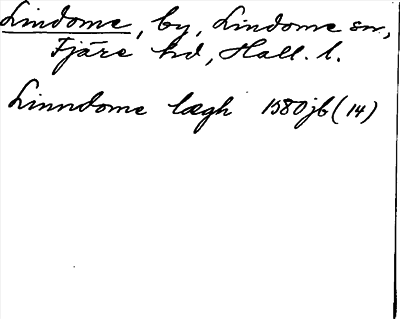 Lindome, by, Lindome sn,
Fjäre hd, Hall. l.
Linndome lægh 1580 jb (14)